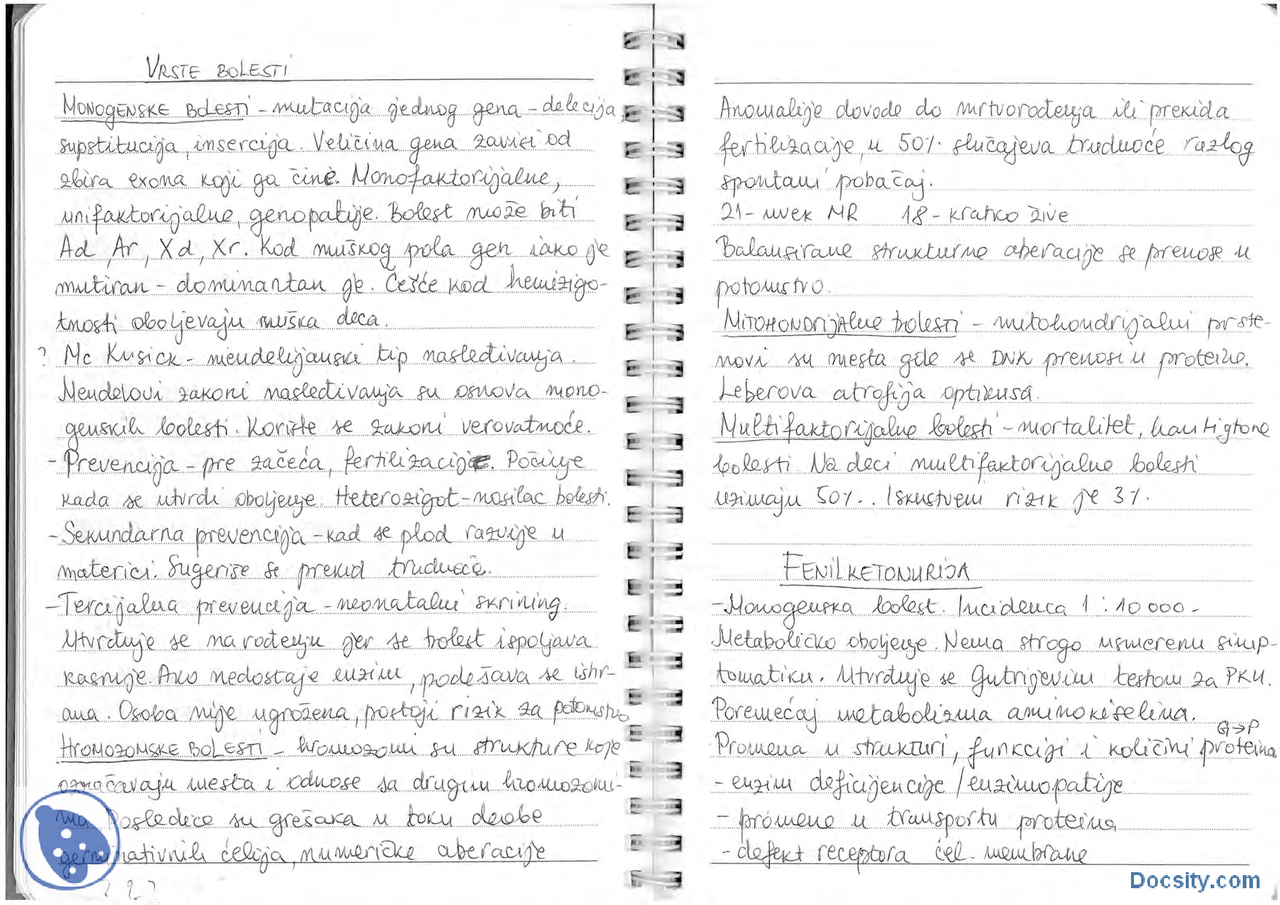 VRSTE BOLESTI
MONOGENSKE BOLESTI - mutacija jednog gena - delecija,
supstitucija, insercija. Veličina gena zavisi od
zbira exona koji ga čine. Monofaktorijalne,
unifaktorijalne, genopatije. Bolest može biti
Ad, Ar, Xd, Xr. Kod muškog pola gen iako je
mutiran - dominantan je. Češće kod hemizigo-
tnosti oboljevaju muška deca.
? Mc Kusick - mendelijanski tip nasleđivanja.
Mendelovi zakoni nasleđivanja su osnova mono-
genskih bolesti. Koriste se zakoni verovatnoće.
- Prevencija - pre začeća, fertilizacije. Počinje
kada se utvrdi oboljenje. Heterozigot - nosilac bolesti.
- Sekundarna prevencija - kad se plod razvije u
materici. Sugeriše se prekid trudnoće.
- Tercijalna prevencija - neonatalni skrining.
Utvrđuje se na rođenju jer se bolest ispoljava
kasnije. Ako nedostaje enzim, podešava se ishr-
ana. Osoba nije ugrožena, postoji rizik za potomstvo
HROMOZOMSKE BOLESTI - hromozomi su strukture koje
označavaju mesta i odnose sa drugim hromozomi-
ma. Posledice su grešaka u toku deobe
germinativnih ćelija, numeričke aberacije
Anomalije dovode do mrtvorođenja ili prekida
fertilizacije, u 50% slučajeva trudnoće razlog
spontani pobačaj.
21 - uvek MR 18 - kratko žive
Balansirane strukturne aberacije se prenose u
potomstvo.
MITOHONDRIJALNE bolesti - mitohondrijalni prste-
novi su mesta gde se DNK prenosi u proteine.
Leberova atrofija optikusa.
Multifaktorijalne bolesti - mortalitet,
bolesti. Na deci multifaktorijalne bolesti
uzimaju 50%. Iskustveni rizik je 3%.
FENILKETONURIJA
- Monogenska bolest. Incidenca 1 : 10 000.
Metaboličko oboljenje. Nema strogo usmerenu simp-
tomatiku. Utvrđuje se Gutrijevim testom za PKU.
Poremećaj metabolizma aminokiselina.
G→P
Promena u strukturi, funkciji i količini proteina
- enzim deficijencije / enzimopatije
- promene u transportu proteina
- defekt receptora ćel. membrane
Docsity.com